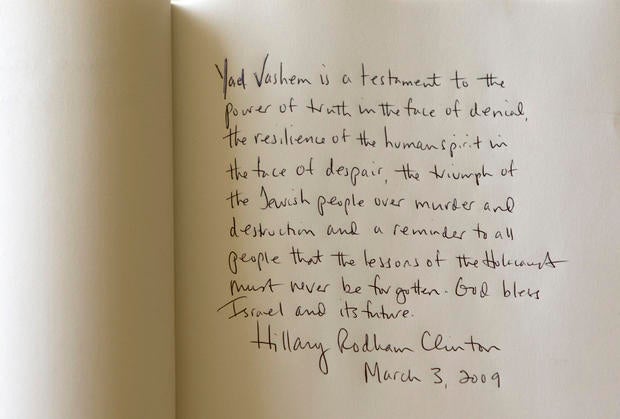 Yad Vashem is a testament to the
power of truth in the face of denial,
the resilience of the human spirit in
the face of despair, the triumph of
the Jewish people over murder and
destruction and a reminder to all
people that the lessons of the Holocaust
must never be forgotten. God bless
Israel and its future.
Hillary Rodham Clinton
March 3, 2009